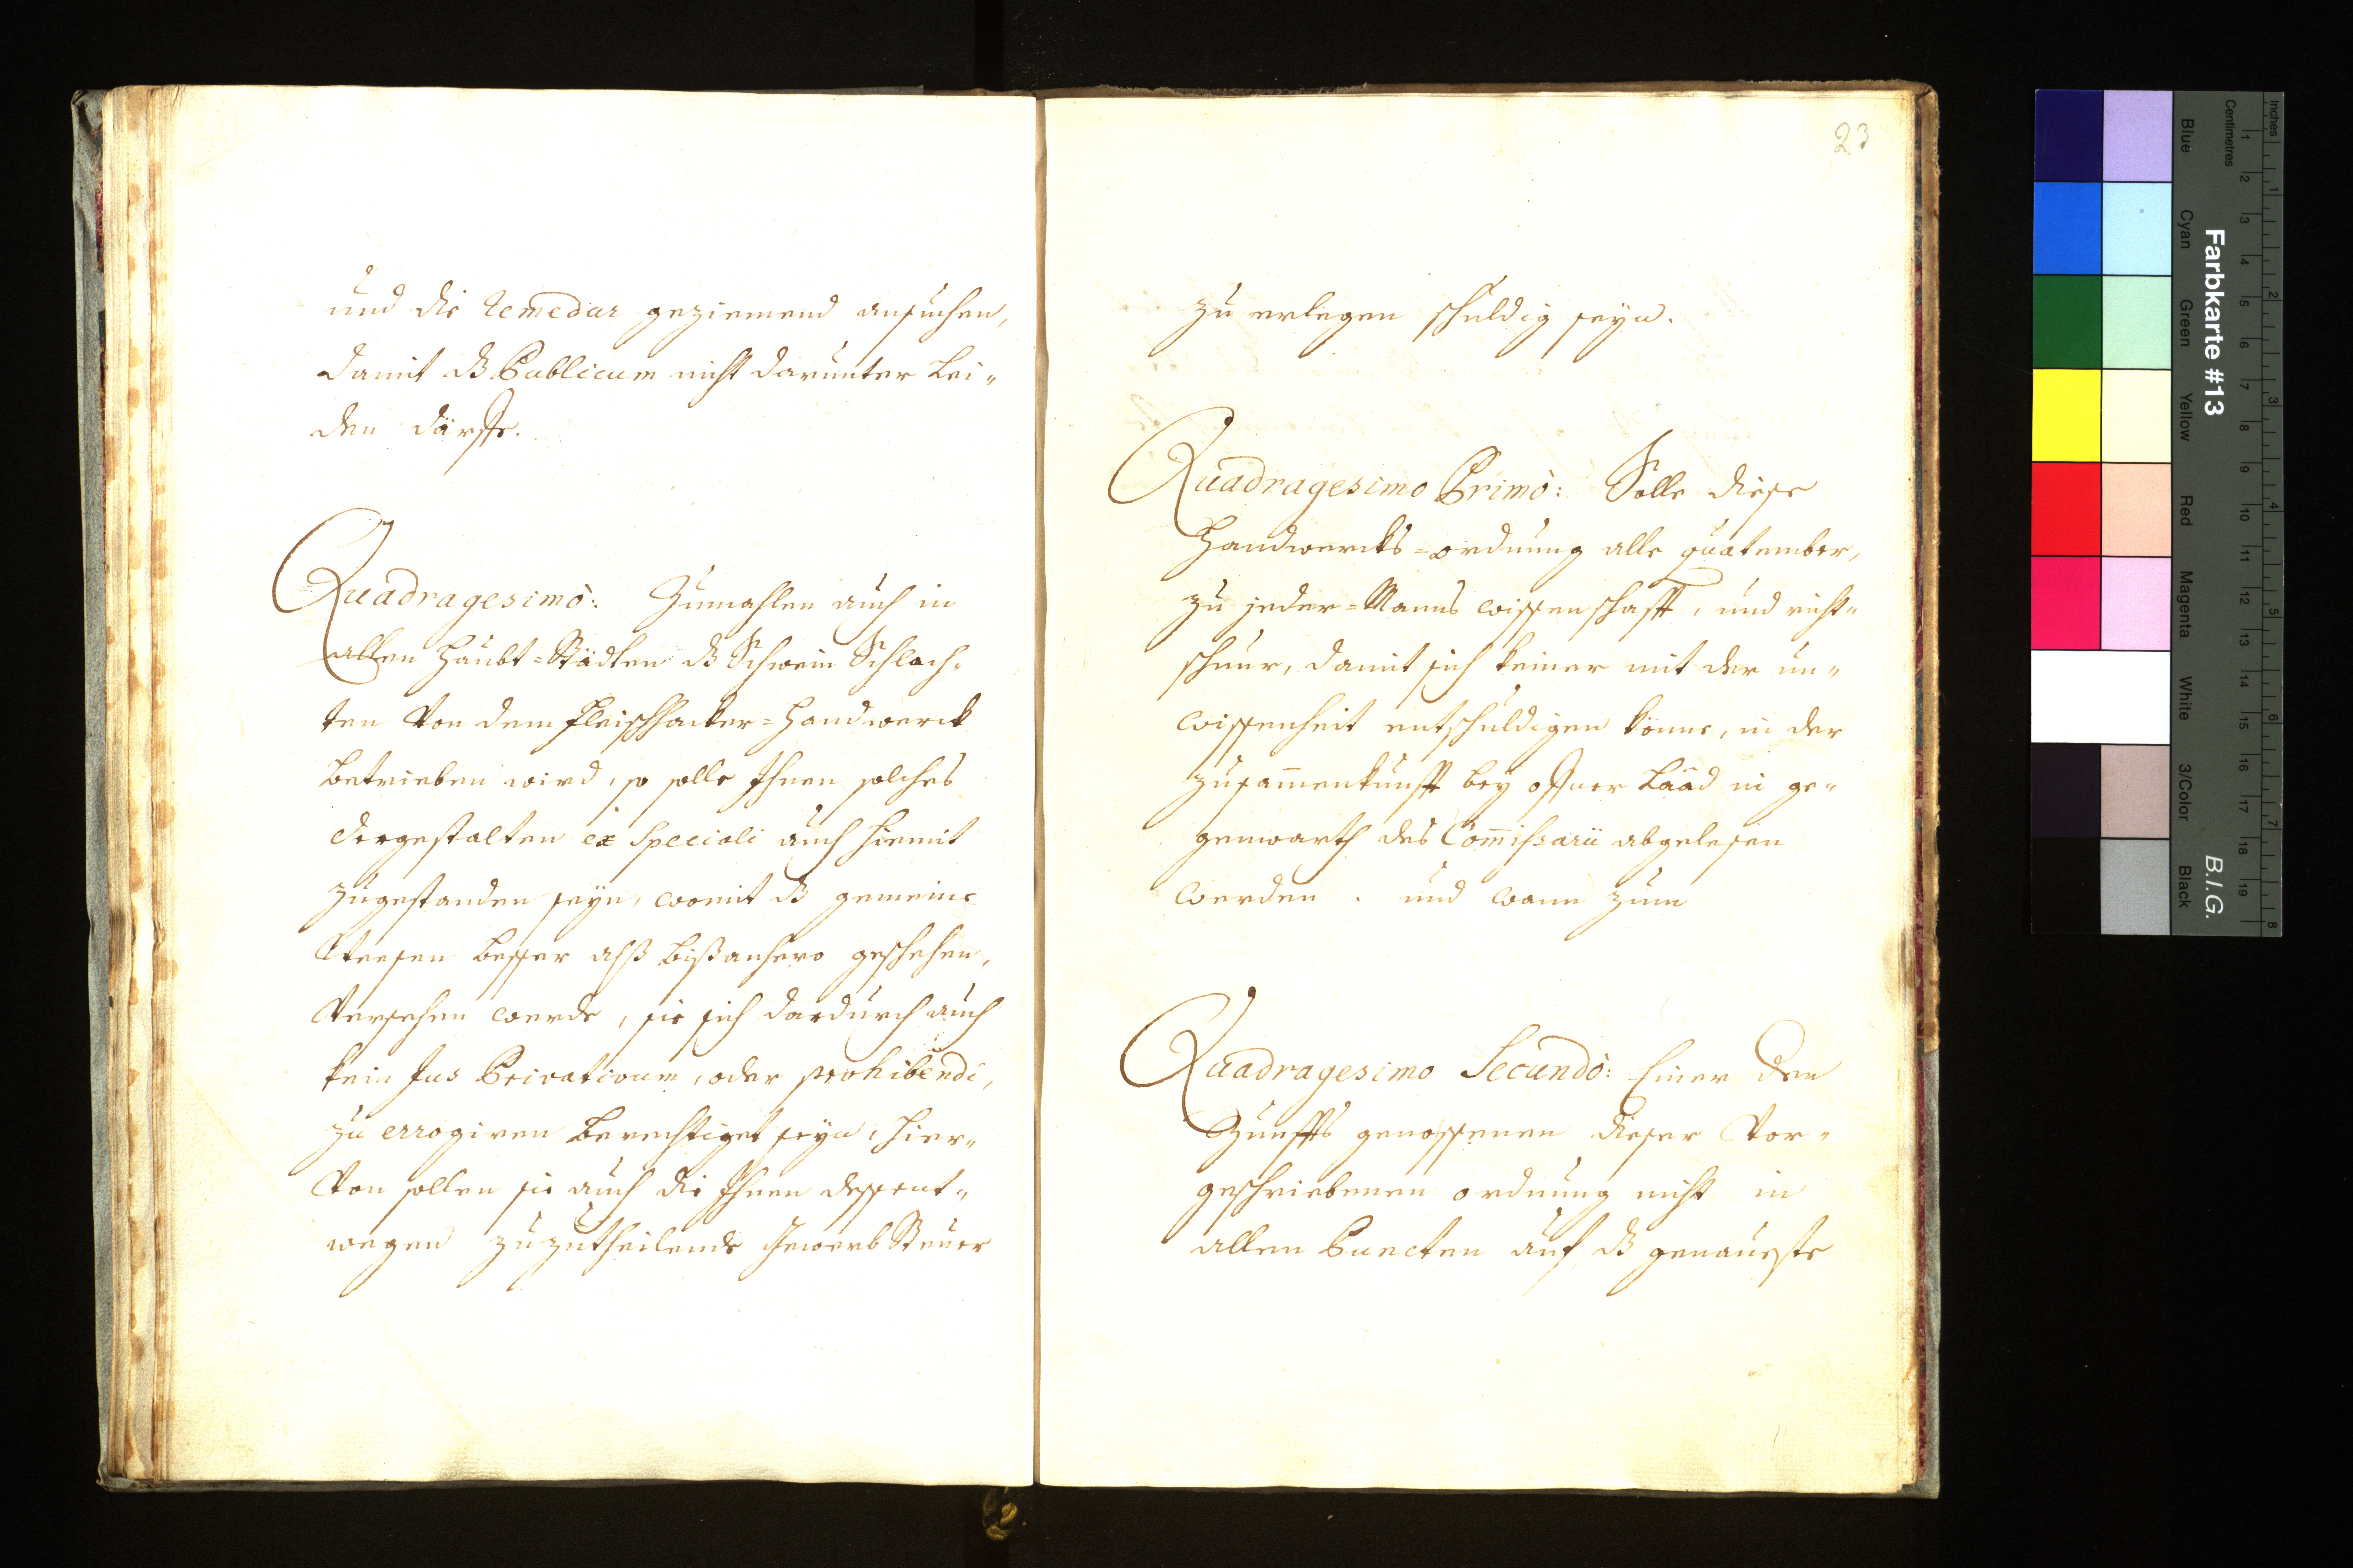 und die remedur geziemend ansuchen,
damit dz Publicum nicht darunter Lei„
den därffe.
Quadragesimò: Zumahlen auch in
allen Haubt=Städten dz Schwein Schlach„
ten Von dem fleischhacker=Handwerck
betrieben wird, so solle Ihnen solches
dergestalten ex speciali auch hiemit
zugestanden seyn, womit dz gemeine
Weesen besser alß bißanhero geschehen,
Versehen werde, sie sich dardurch auch
kein Jus Privativum, oder prohibendi,
zu errogiren berechtiget seyn, hier„
Von sollen sie auch die Ihnen dessent„
wegen zuzutheilende Gewerb Steuer
23
zu erlegen schuldig seyn.
Quadragesimo Primò: Solle diese
Handwercks=ordnung alle quatember,
zu jeder=Manns wissenschafft, und richt„
schnur, damit sich keiner mit der un„
wissenheit entschuldigen könne, in der
zusam̅enkunfft bey offner Laad in ge„
genwarth des Com̅issarii abgelesen
werden. und wann zum
Quadragesimo Secundò: Einer den
Zunffts genossenen dieser Vor„
geschriebenen ordnung nicht in
allen Puncten auf dz genaueste
Farbkarte #13
B.I.G.
Inches
Centimetres
Blue
Cyan
Green
Yellow
Red
Magenta
White
3/Color
Black
1 2 3 4 5 6 7 8 9 10 11 12 13 14 15 16 17 18 19
1 2 3 4 5 6 7 8